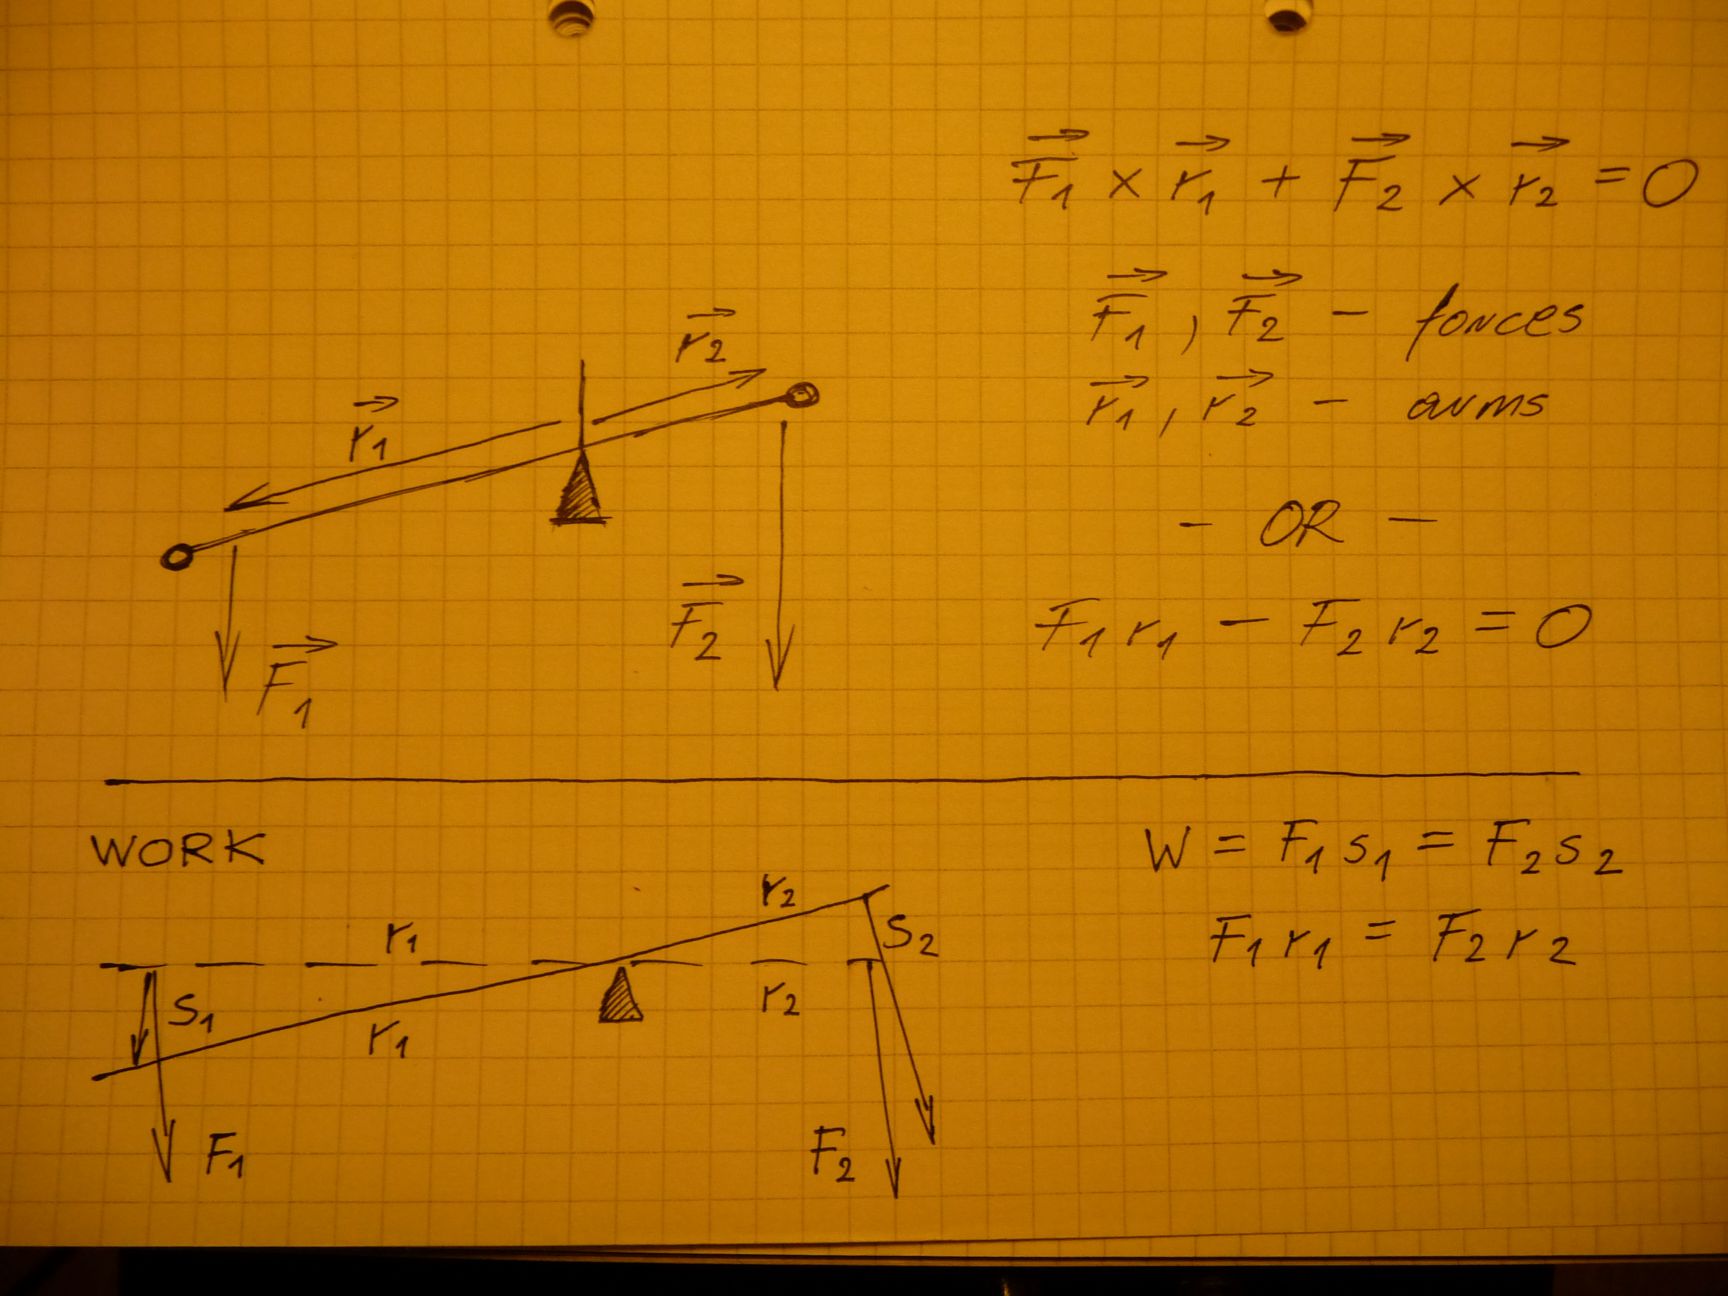 F⃗₁ × r⃗₁ + F⃗₂ × r⃗₂ = 0
F⃗₁, F⃗₂ – forces
r⃗₁, r⃗₂ – arms
– OR –
F₁ r₁ – F₂ r₂ = 0
r⃗₂
r⃗₁
F⃗₂
F⃗₁
WORK
W = F₁ s₁ = F₂ s₂
F₁ r₁ = F₂ r₂
r₂
r₁
s₂
s₁
r₂
r₁
F₁
F₂